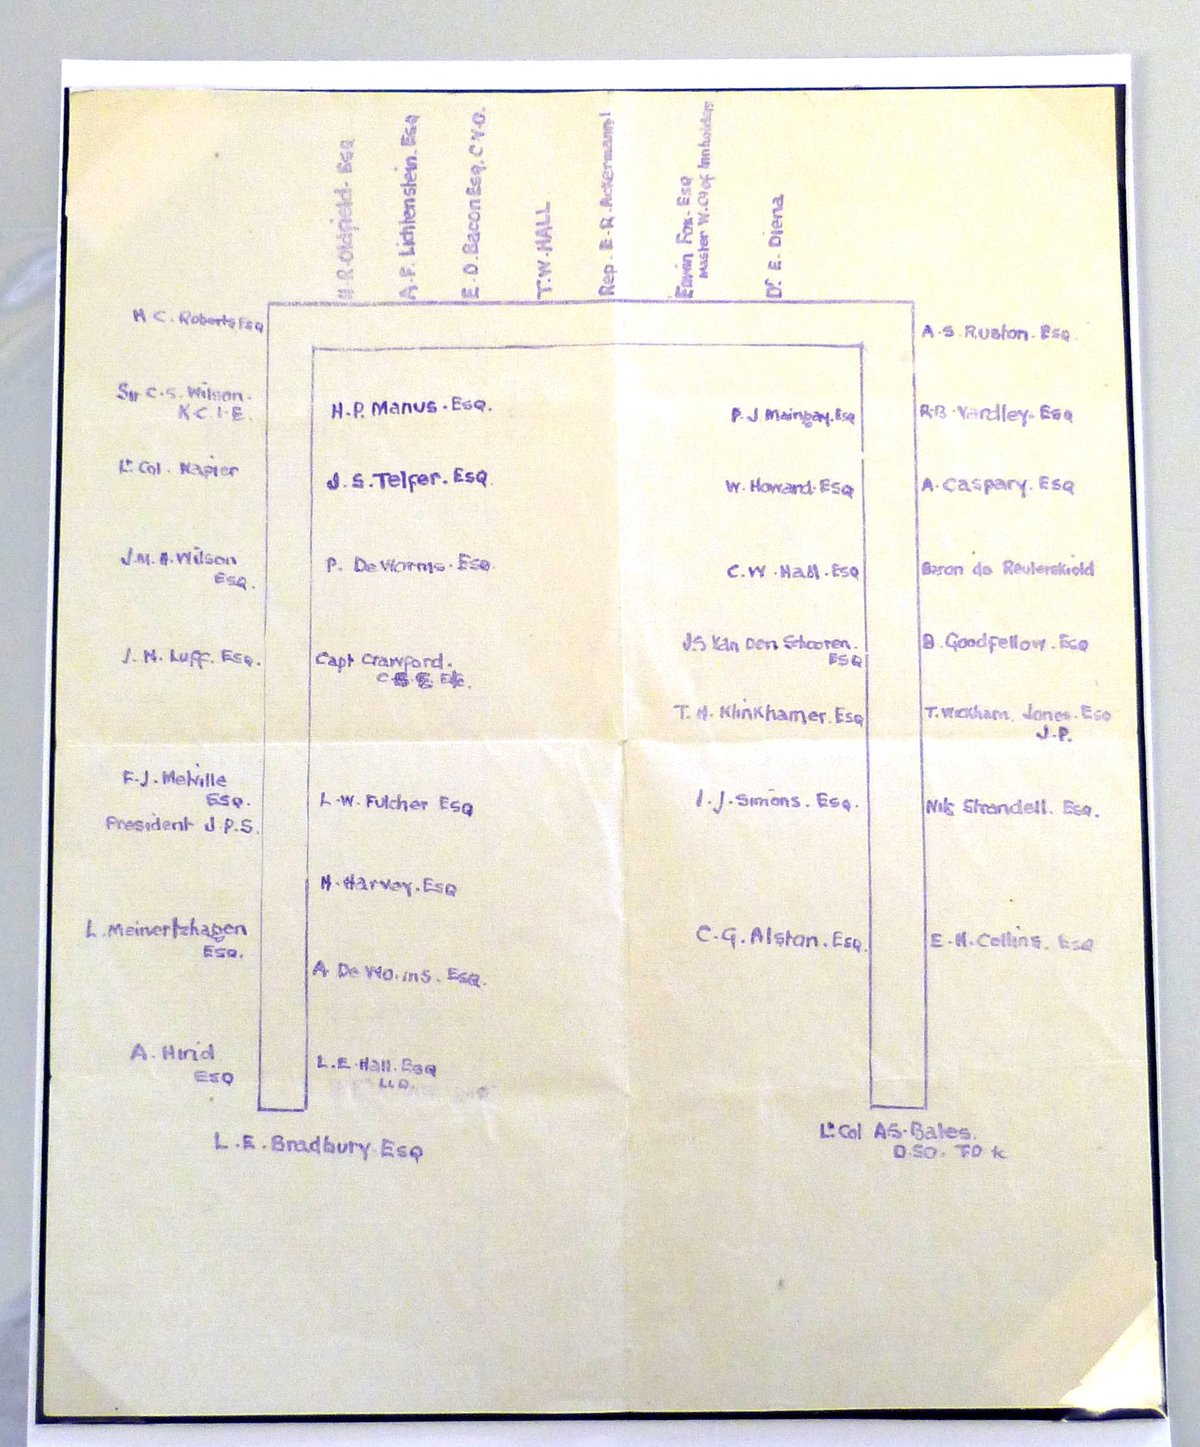 H. R. Oldfield. Esq
A. F. Lichtenstein. Esq
E. D. Bacon Esq. C.V.O.
T. W. HALL
Rep. E. R. Ackermann
Edwin Fox. Esq
Master W. C? of Innholders
Dr. E. Diena
H. C. Roberts Esq
A. S. Ruston. Esq.
Sir C. S. Wilson.
K. C. I. E.
H. P. Manus. Esq.
P. J. Maingay. Esq
R. B. Yardley. Esq
Lt. Col. Napier
J. S. Telfer. Esq
W. Howard. Esq
A. Caspary. Esq
J. M. A. Wilson
Esq.
P. De Worms. Esq
C. W. Hall. Esq
Baron de Reuterskiold
J. N. Luff. Esq.
Capt Crawford.
J. S Van Den Schooren.
Esq
B. Goodfellow. Esq
T. H. Klinkhamer. Esq
T. Wickham Jones. Esq
J. P.
F. J. Melville
Esq.
President J. P. S.
L. W. Fulcher Esq
I. J. Simons. Esq.
Nils Strandell. Esq.
H. Harvey. Esq
L. Meinertzhagen
Esq.
A De Worms. Esq.
C. G. Alston. Esq.
E. H. Collins. Esq
A. Hind
Esq
L. E. Hall. Esq
LL D.
L. E. Bradbury Esq
Lt. Col A S. Bates.
D. SO. T D